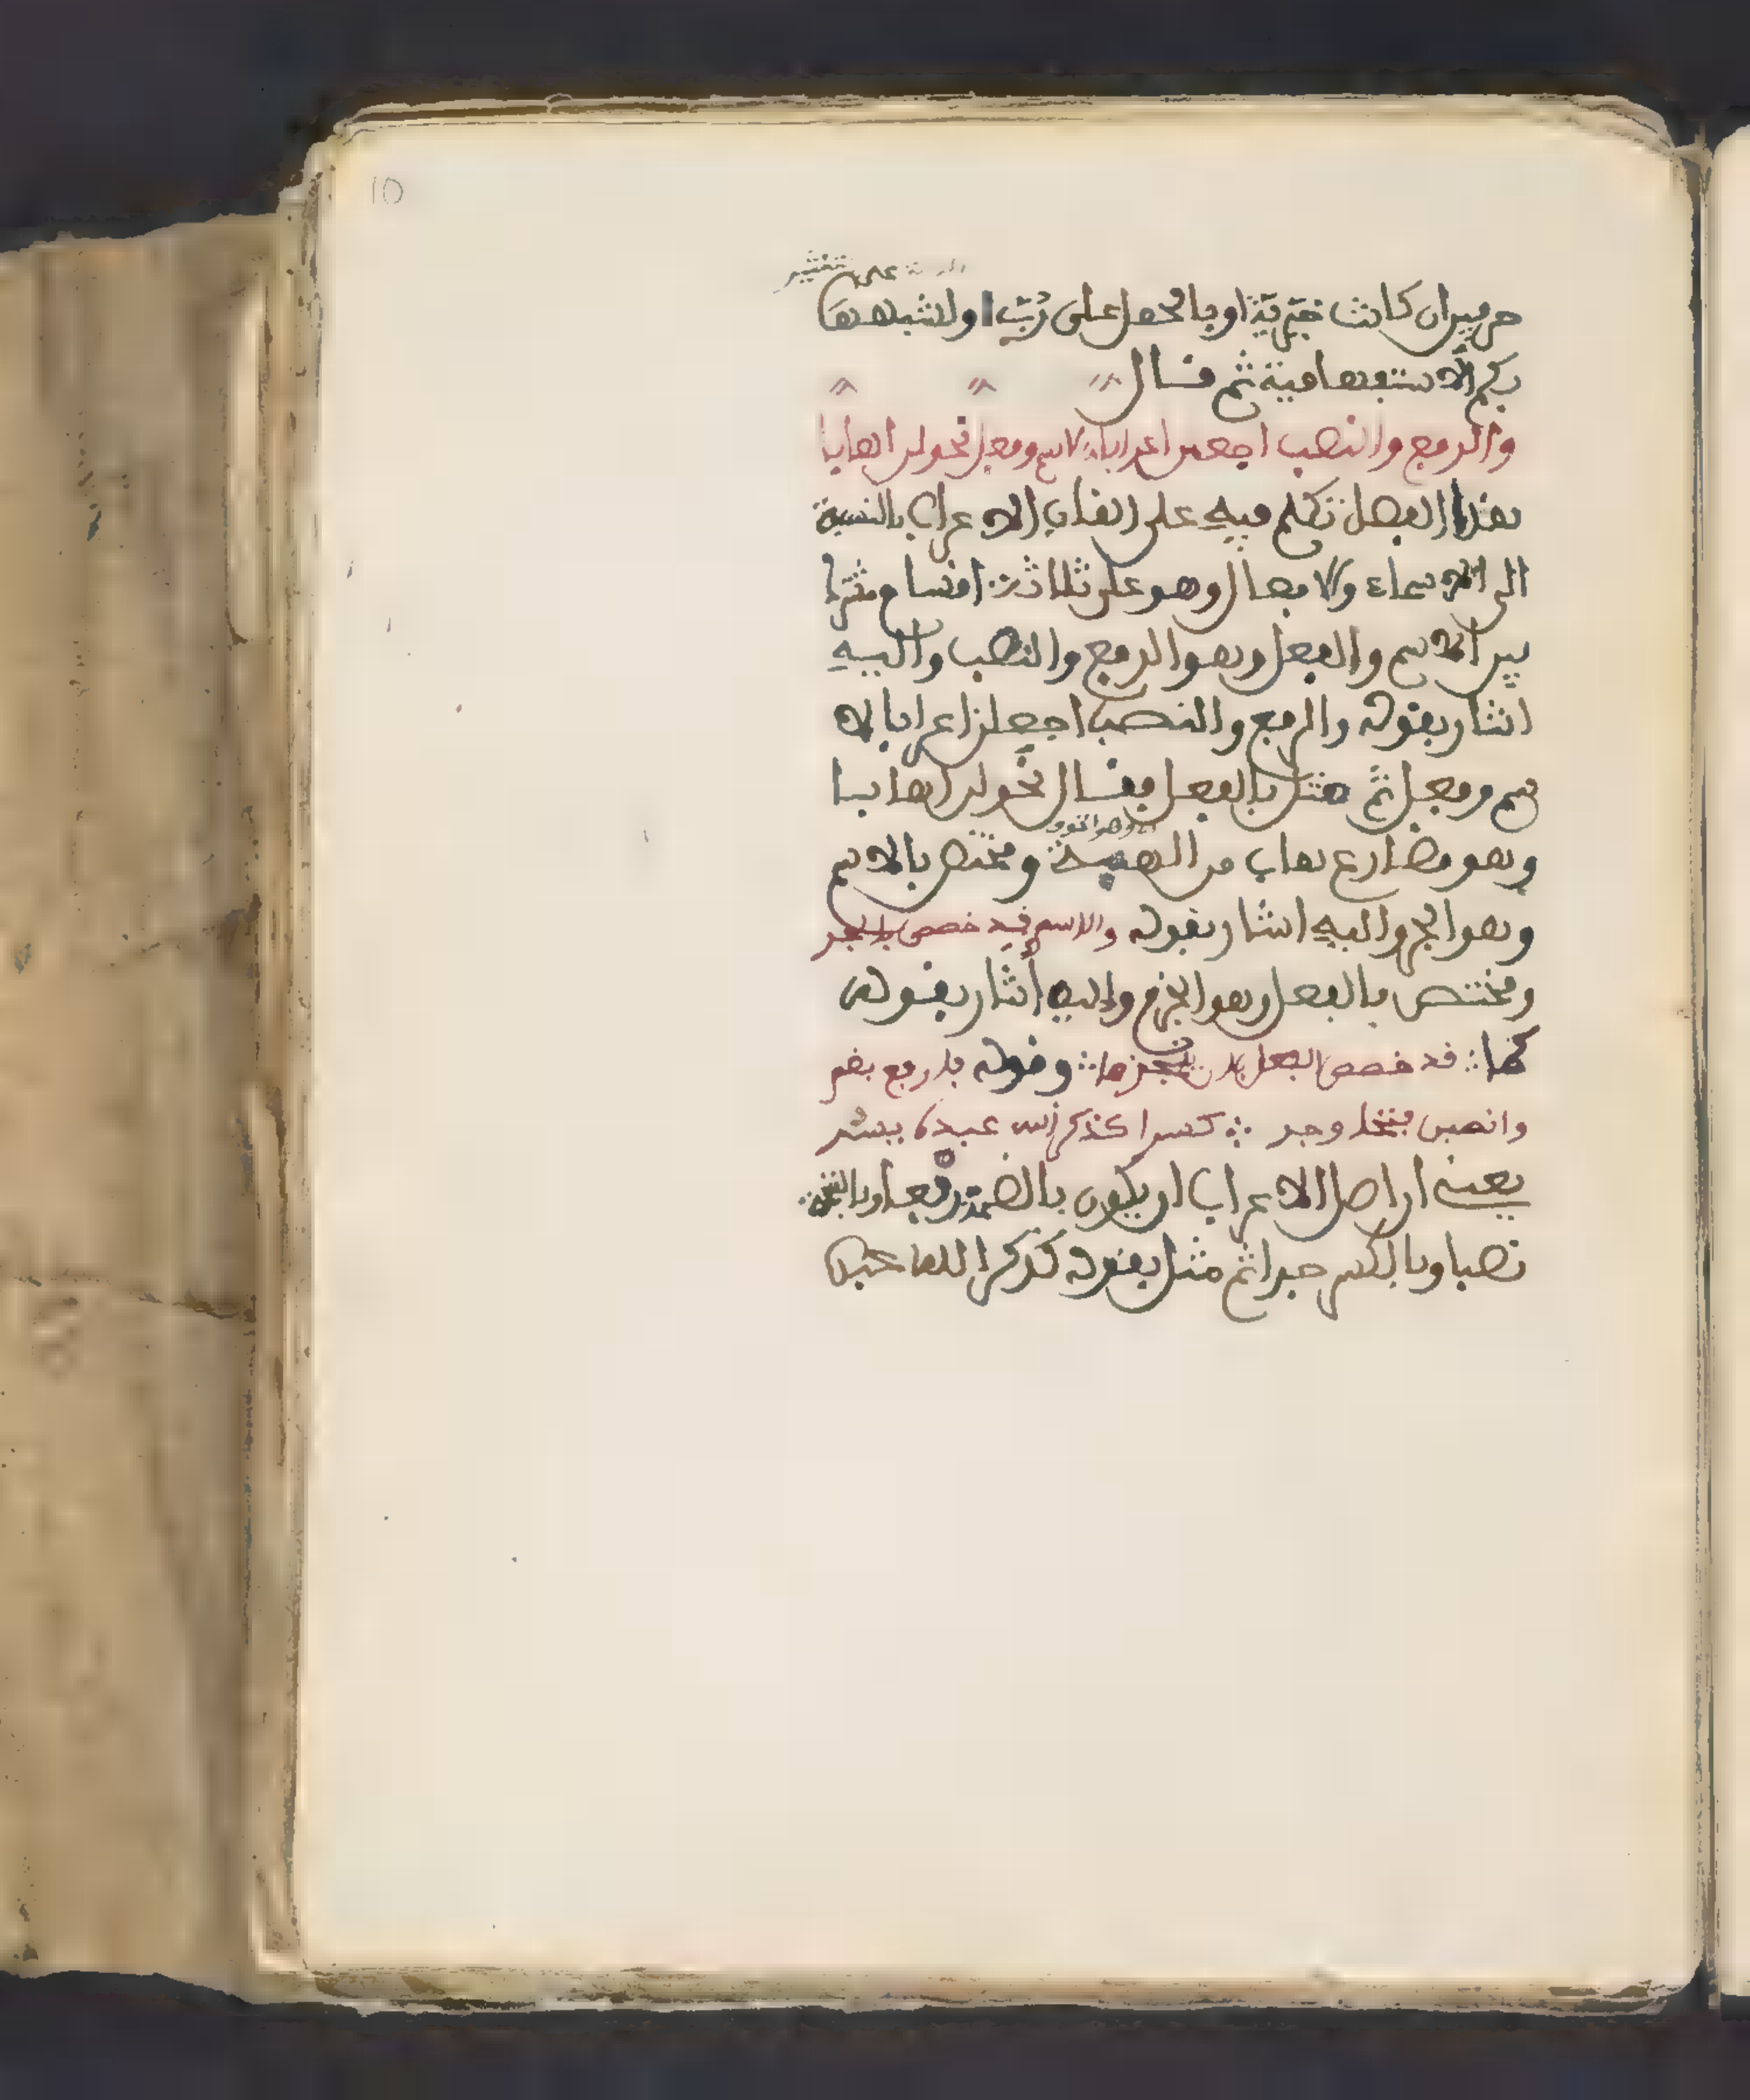 10
على تفسير
حرفين ان كانت خبرية او بالحمل على رب او لشبهها
بكم الاستفهامية ثم قال
والرفع والنصب اجعلن اعرابا لاسم وفعل نحو لن اهابا
هذا الفصل تكلم فيه على القاب الاعراب بالنسبة
الى الاسماء والافعال وهو على ثلاثة اقسام مشترك
بين الاسم والفعل وهو الرفع والنصب واليه
اشار بقوله والرفع والنصب اجعلن اعرابا لا
سم وفعل ثم مثل بالفعل فقال نحو لن اهابا
وهو مضارع هاب من الهيبة ومختص بالاسم
وهو الجر واليه اشار بقوله والاسم قد خصص بالجر
ومختص بالفعل وهو الجزم واليه أشار بقوله
كما قد خصص الفعل بان ينجزما وقوله فارفع بضم
وانصبن فتحا وجر كسرا كذكر الله عبده يسر
يعني ان اصل الاعراب ان يكون بالضمة رفعا وبالفتحة
نصبا وبالكسر جرا ثم مثل بقوله كذكر الله عبده